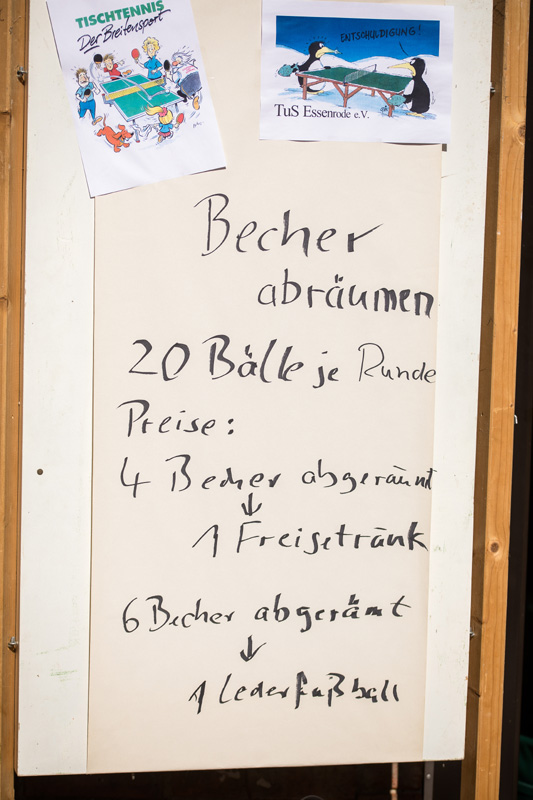 TISCHTENNIS
Der Breitensport
ENTSCHULDIGUNG!
TuS Essenrode e.V.
Becher
abräumen
20 Bälle je Runde
Preise:
4 Becher abgeräumt
↓
1 Freigetränk
6 Becher abgerämt
↓
1 Lederfußball